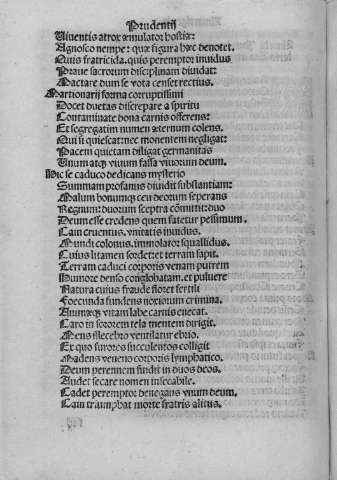 Prudentij
Viuentis atrox æmulator hostiæ:
Agnosco nempe: quæ figura hæc denotet.
Quis fratricida. quis peremptor inuidus
Praue sacrorum disciplinam diuidat:
Mactare dum se vota censet rectius.
Martionarij forma corruptissimi
Docet duetas discrepare a spiritu
Contaminate dona carnis offerens:
Et segregatim numen æternum colens.
Qui si quiescat: nec monentem negligat:
Pacem quietam diligat germanitas
Vnum atqꝫ viuum fassa viuorum deum.
Hic se caduco dedicans mysterio
Summam profanus diuidit substantiam:
Malum bonumqꝫ ceu deorum seperans
Regnum: duorum sceptra cōmittit: duo
Deum esse credens quem fatetur pessimum.
Cain cruentus. vnitatis inuidus.
Mundi colonus. immolator squallidus.
Cuius litamen sordet: et terram sapit.
Terram caduci corporis venam putrem
Humore denso conglobatam. et puluere
Natura cuius fraude floret fertili
Foecunda fundens noxiorum crimina.
Animæqꝫ vitam labe carnis enecat.
Caro in sororem tela mentem dirigit.
Mens illecebro ventilatur ebrio.
Ex quo furores succulentos colligit
Madens veneno corporis lymphatico.
Deum perennem findit in duos deos.
Audet secare nomen insecabile.
Cadet peremptor denegans vnum deum.
Cain triumphat morte fratris alitus.